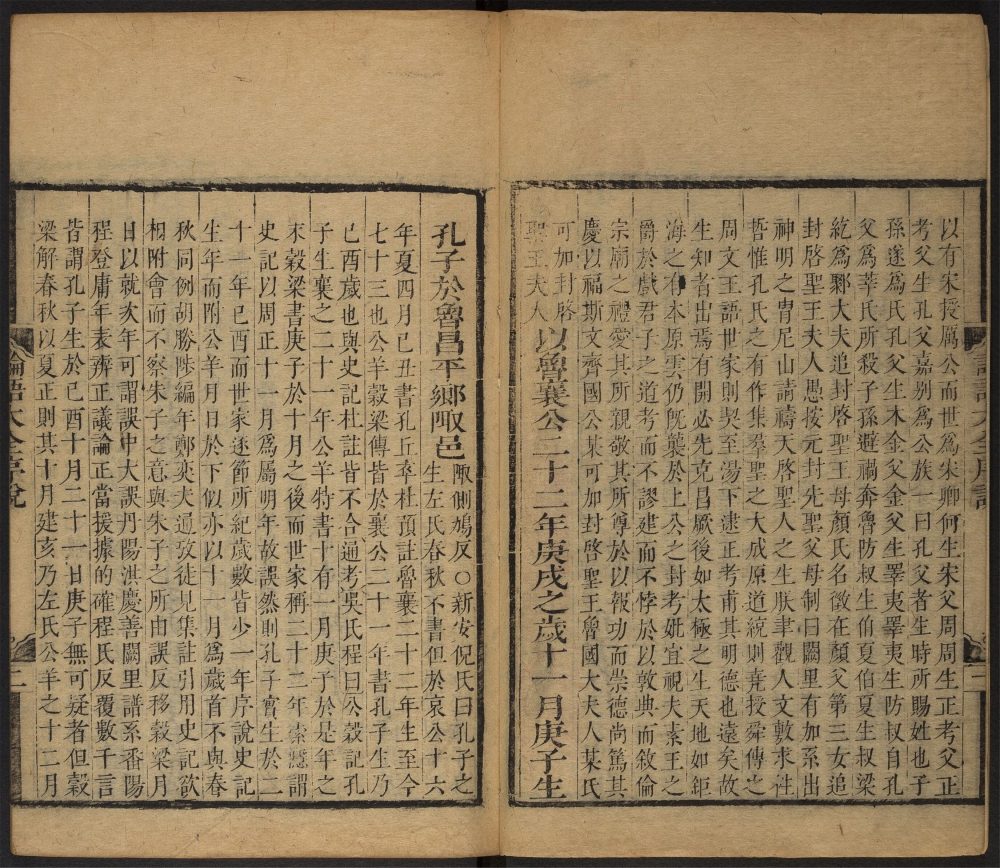 以有宋授厲公而世爲宋卿何生宋父周周生正考父正
考父生孔父嘉别爲公族一曰孔父者生時所賜姓也子
孫遂爲氏孔父生木金父金父生睪夷睪夷生防叔自孔
父爲華氏所殺子孫避禍奔魯防叔生伯夏伯夏生叔梁
紇爲鄹大夫追封啓聖王母顏氏名徵在顏父第三女追
封啓聖王夫人愚按元封先聖父母制曰闕里有加系出
神明之胄尼山請禱天啓聖人之生朕聿觀人文敷求往
哲惟孔氏之有作集羣聖之大成原道統則堯授舜傳之
周文王語世家則契至湯下逮正考甫其明德也遠矣故
生知者出焉有開必先克昌厥後如太極之生天地如鉅
海之有本原雲仍旣襲於上公之封考妣宜視夫素王之
爵於戲君子之道考而不謬建而不悖於以敦典而敘倫
宗廟之禮愛其所親敬其所尊於以報功而崇德尚篤其
慶以福斯文齊國公某可加封啓聖王魯國大夫人某氏
可加封啓聖王夫人 以魯襄公二十二年庚戌之歲十一月庚子生
孔子於魯昌平鄉陬邑 陬側鳩反〇新安倪氏曰孔子之生左氏春秋不書但於哀公十六
年夏四月己丑書孔丘卒杜預註魯襄二十二年生至今
七十三也公羊穀梁傳皆於襄公二十一年書孔子生乃
己酉歲也與史記杜註皆不合通考吳氏程曰公穀記孔
子生襄之二十一年公羊特書十有一月庚子於是年之
末穀梁書庚子於十月之後而世家稱二十二年索隱謂
史記以周正十一月爲屬明年故誤然則孔子實生於二
十一年己酉而世家逐節所紀歲數皆少一年序說史記
生年而附公羊月日於下似亦以十一月爲歲首不與春
秋同例胡勝陟編年鄭奕夫通攷徒見集註引用史記欲
相附會而不察朱子之意與朱子之所由誤反移穀梁月
日以就次年可謂誤中大誤丹陽洪慶善闕里譜系番陽
程登庸年表辨正議論正當援據的確程氏反覆數千言
皆謂孔子生於己酉十月二十一日庚子無可疑者但穀
梁解春秋以夏正則其十月建亥乃左氏公羊之十二月
論語大全序說